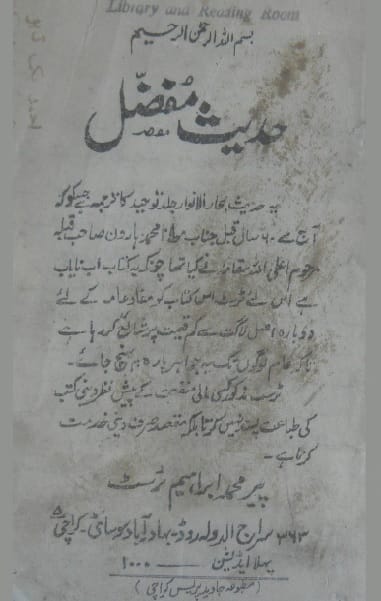 Library and Reading Room
بسم اللہ الرحمٰن الرحیم
حدیث مفضّل
یہ حدیث بحار الانوار جلد توحید کا ترجمہ ہے جس کو کہ
آج سے ۶۰ سال قبل جناب مولانا محمد ہارون صاحب قبلہ
مرحوم اعلی اللہ مقامہ نے کیا تھا چونکہ یہ کتاب اب نایاب
ہے اس لئے ٹرسٹ اس کتاب کو مفاد عامہ کے لئے
دوبارہ اصل لاگت سے کم قیمت پر شائع کر رہا ہے
تاکہ عام لوگوں تک یہ جواہر پارہ پہنچ جائے۔
ٹرسٹ مذکور کسی مالی منفعت کے پیش نظر دینی کتب
کی طباعت نہیں کرتا بلکہ مقصد صرف دینی خدمت
کرنا ہے۔
پیر محمد ابراہیم ٹرسٹ
۳۶۳ سراج الدولہ روڈ۔ بہادر آباد سوسائٹی۔ کراچی ۵
پہلا ایڈیشن ۱۰۰۰
(مطبوعہ جاوید پریس کراچی)